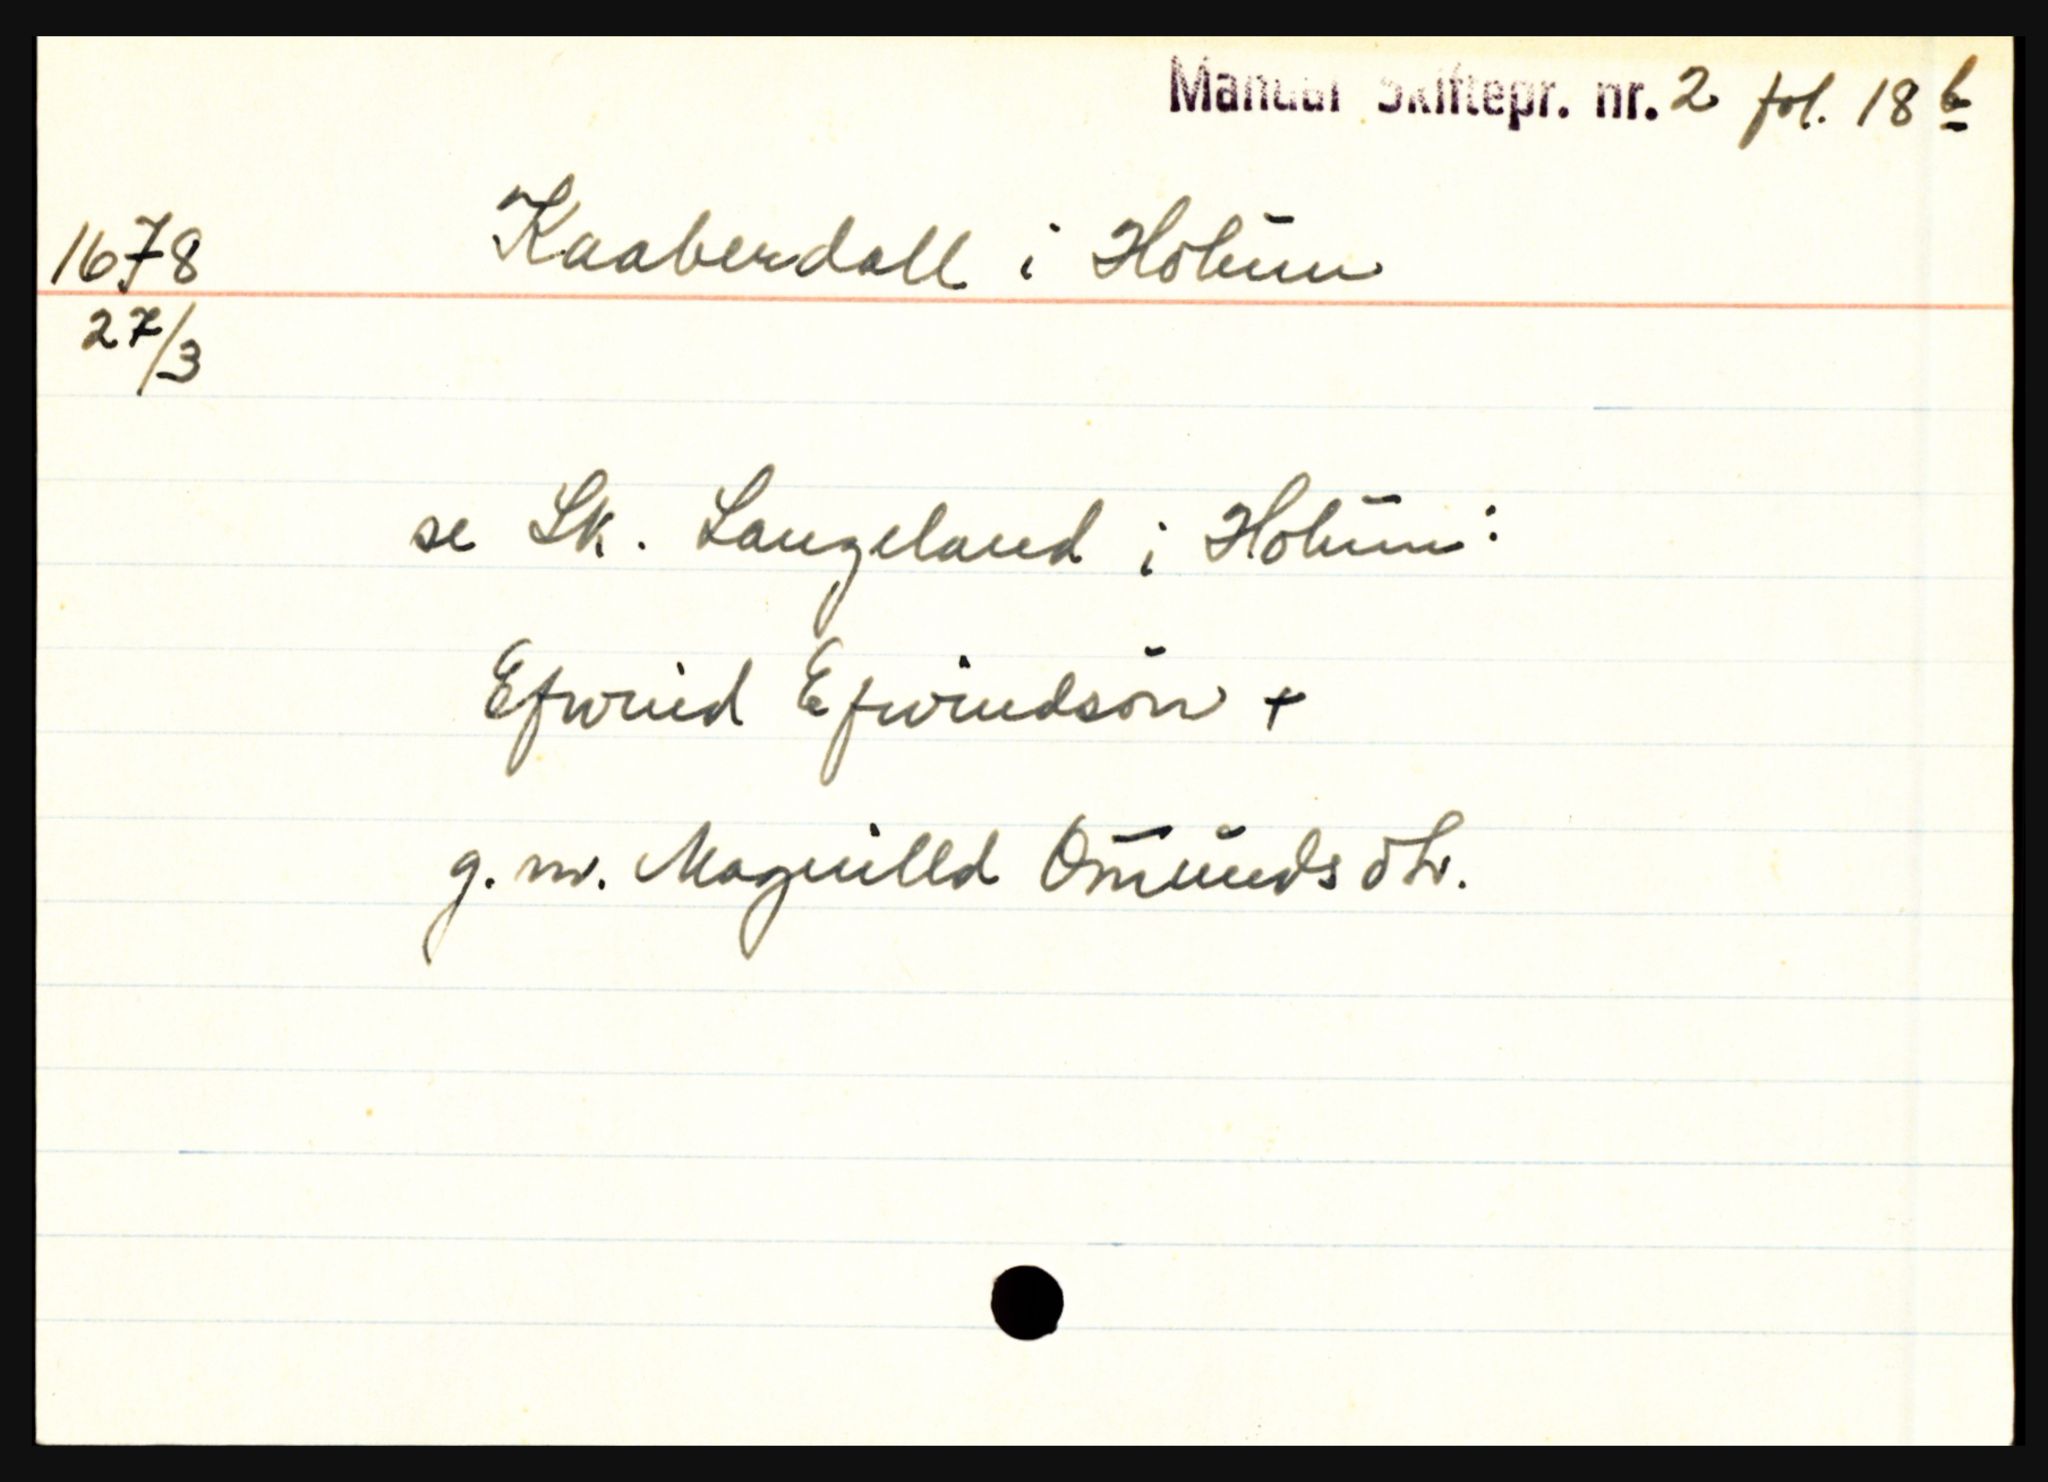 Mandal Skiftepr. nr. 2 fol. 18 b
1678 Kaaberdall i Holum
27/3
se Lk. Langeland i Holum:
Efwind Efwindsøn +
g.m. Magnilld Omunds dtr.